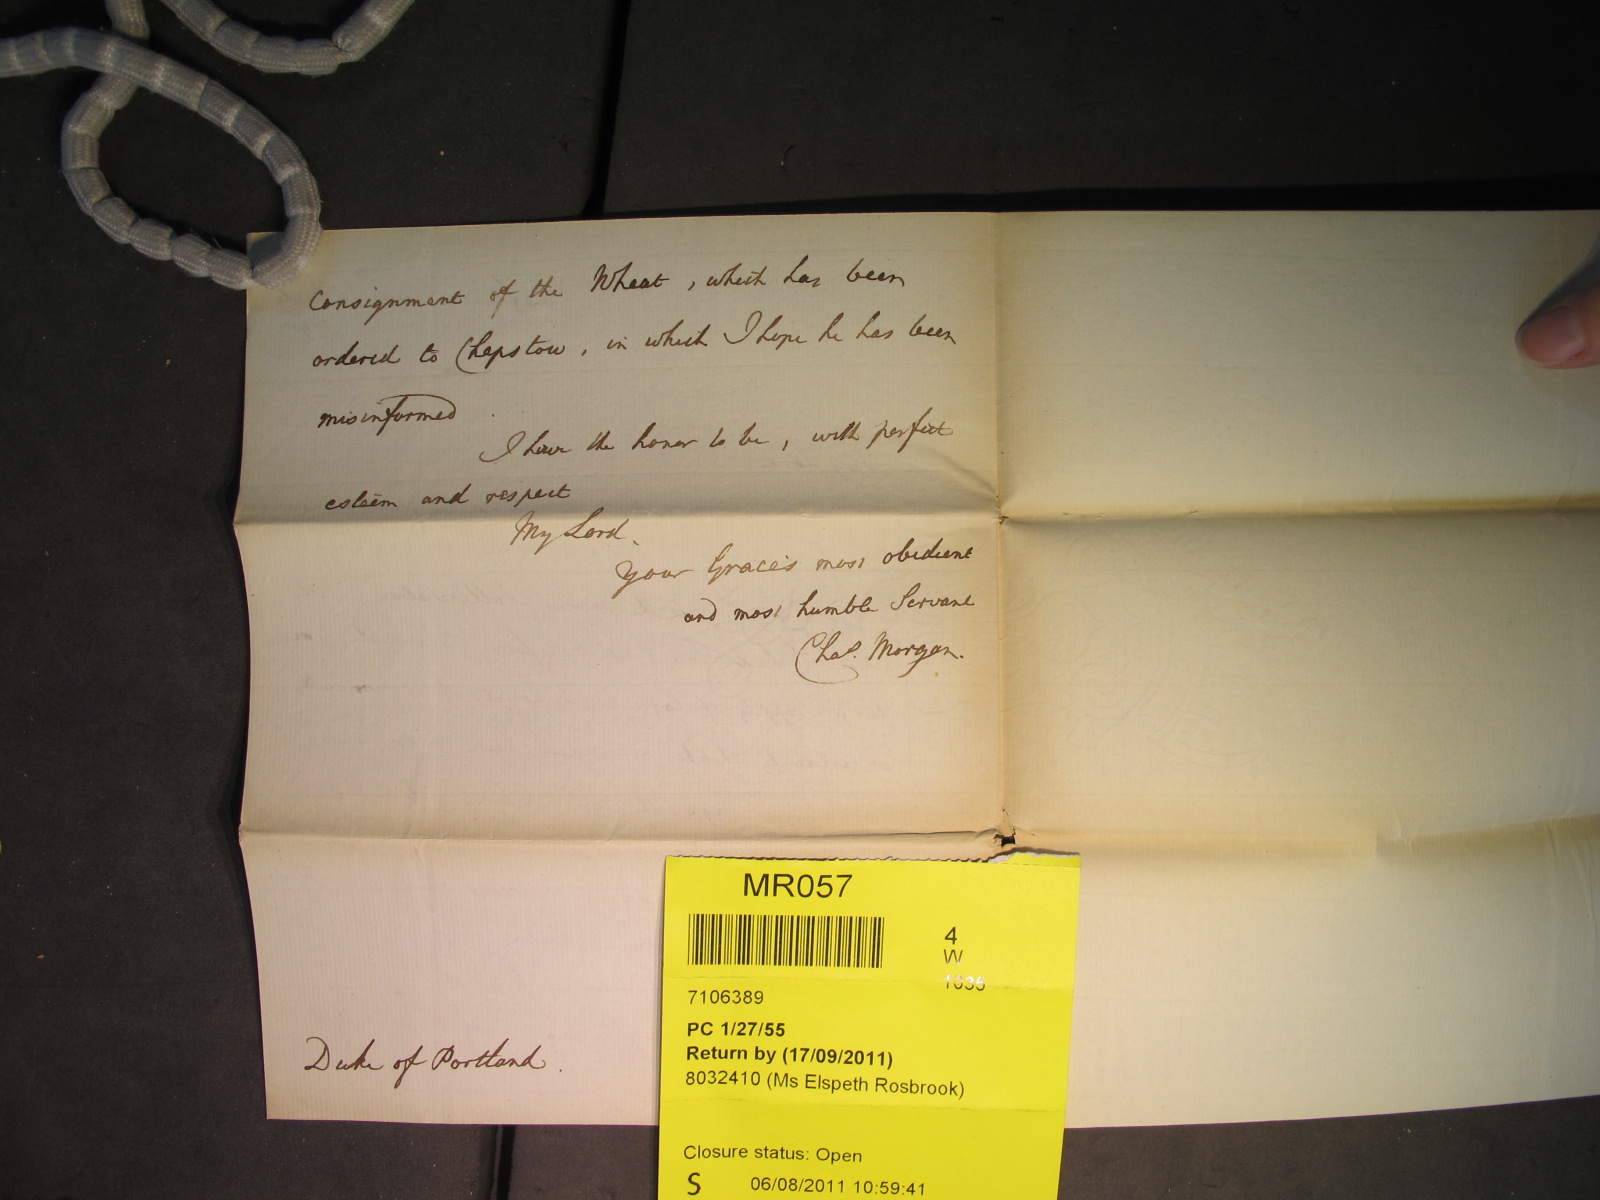 Consignment of the Wheat, which has been
ordered to Chepstow, in which I hope he has been
misinformed.
I have the honor to be, with perfect
esteem and respect
My Lord.
Your Grace's most obedient
and most humble Servant
Chas. Morgan.
Duke of Portland.
MR057
4
W
1035
7106389
PC 1/27/55
Return by (17/09/2011)
8032410 (Ms Elspeth Rosbrook)
Closure status: Open
S 06/08/2011 10:59:41